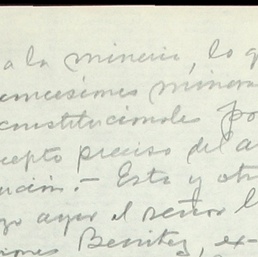 a la minería, lo q
concesiones minera
constitucionales po
cepto preciso del a
ución.- Esta y otr
zo ayer el señor l
iones Benítez, ex-